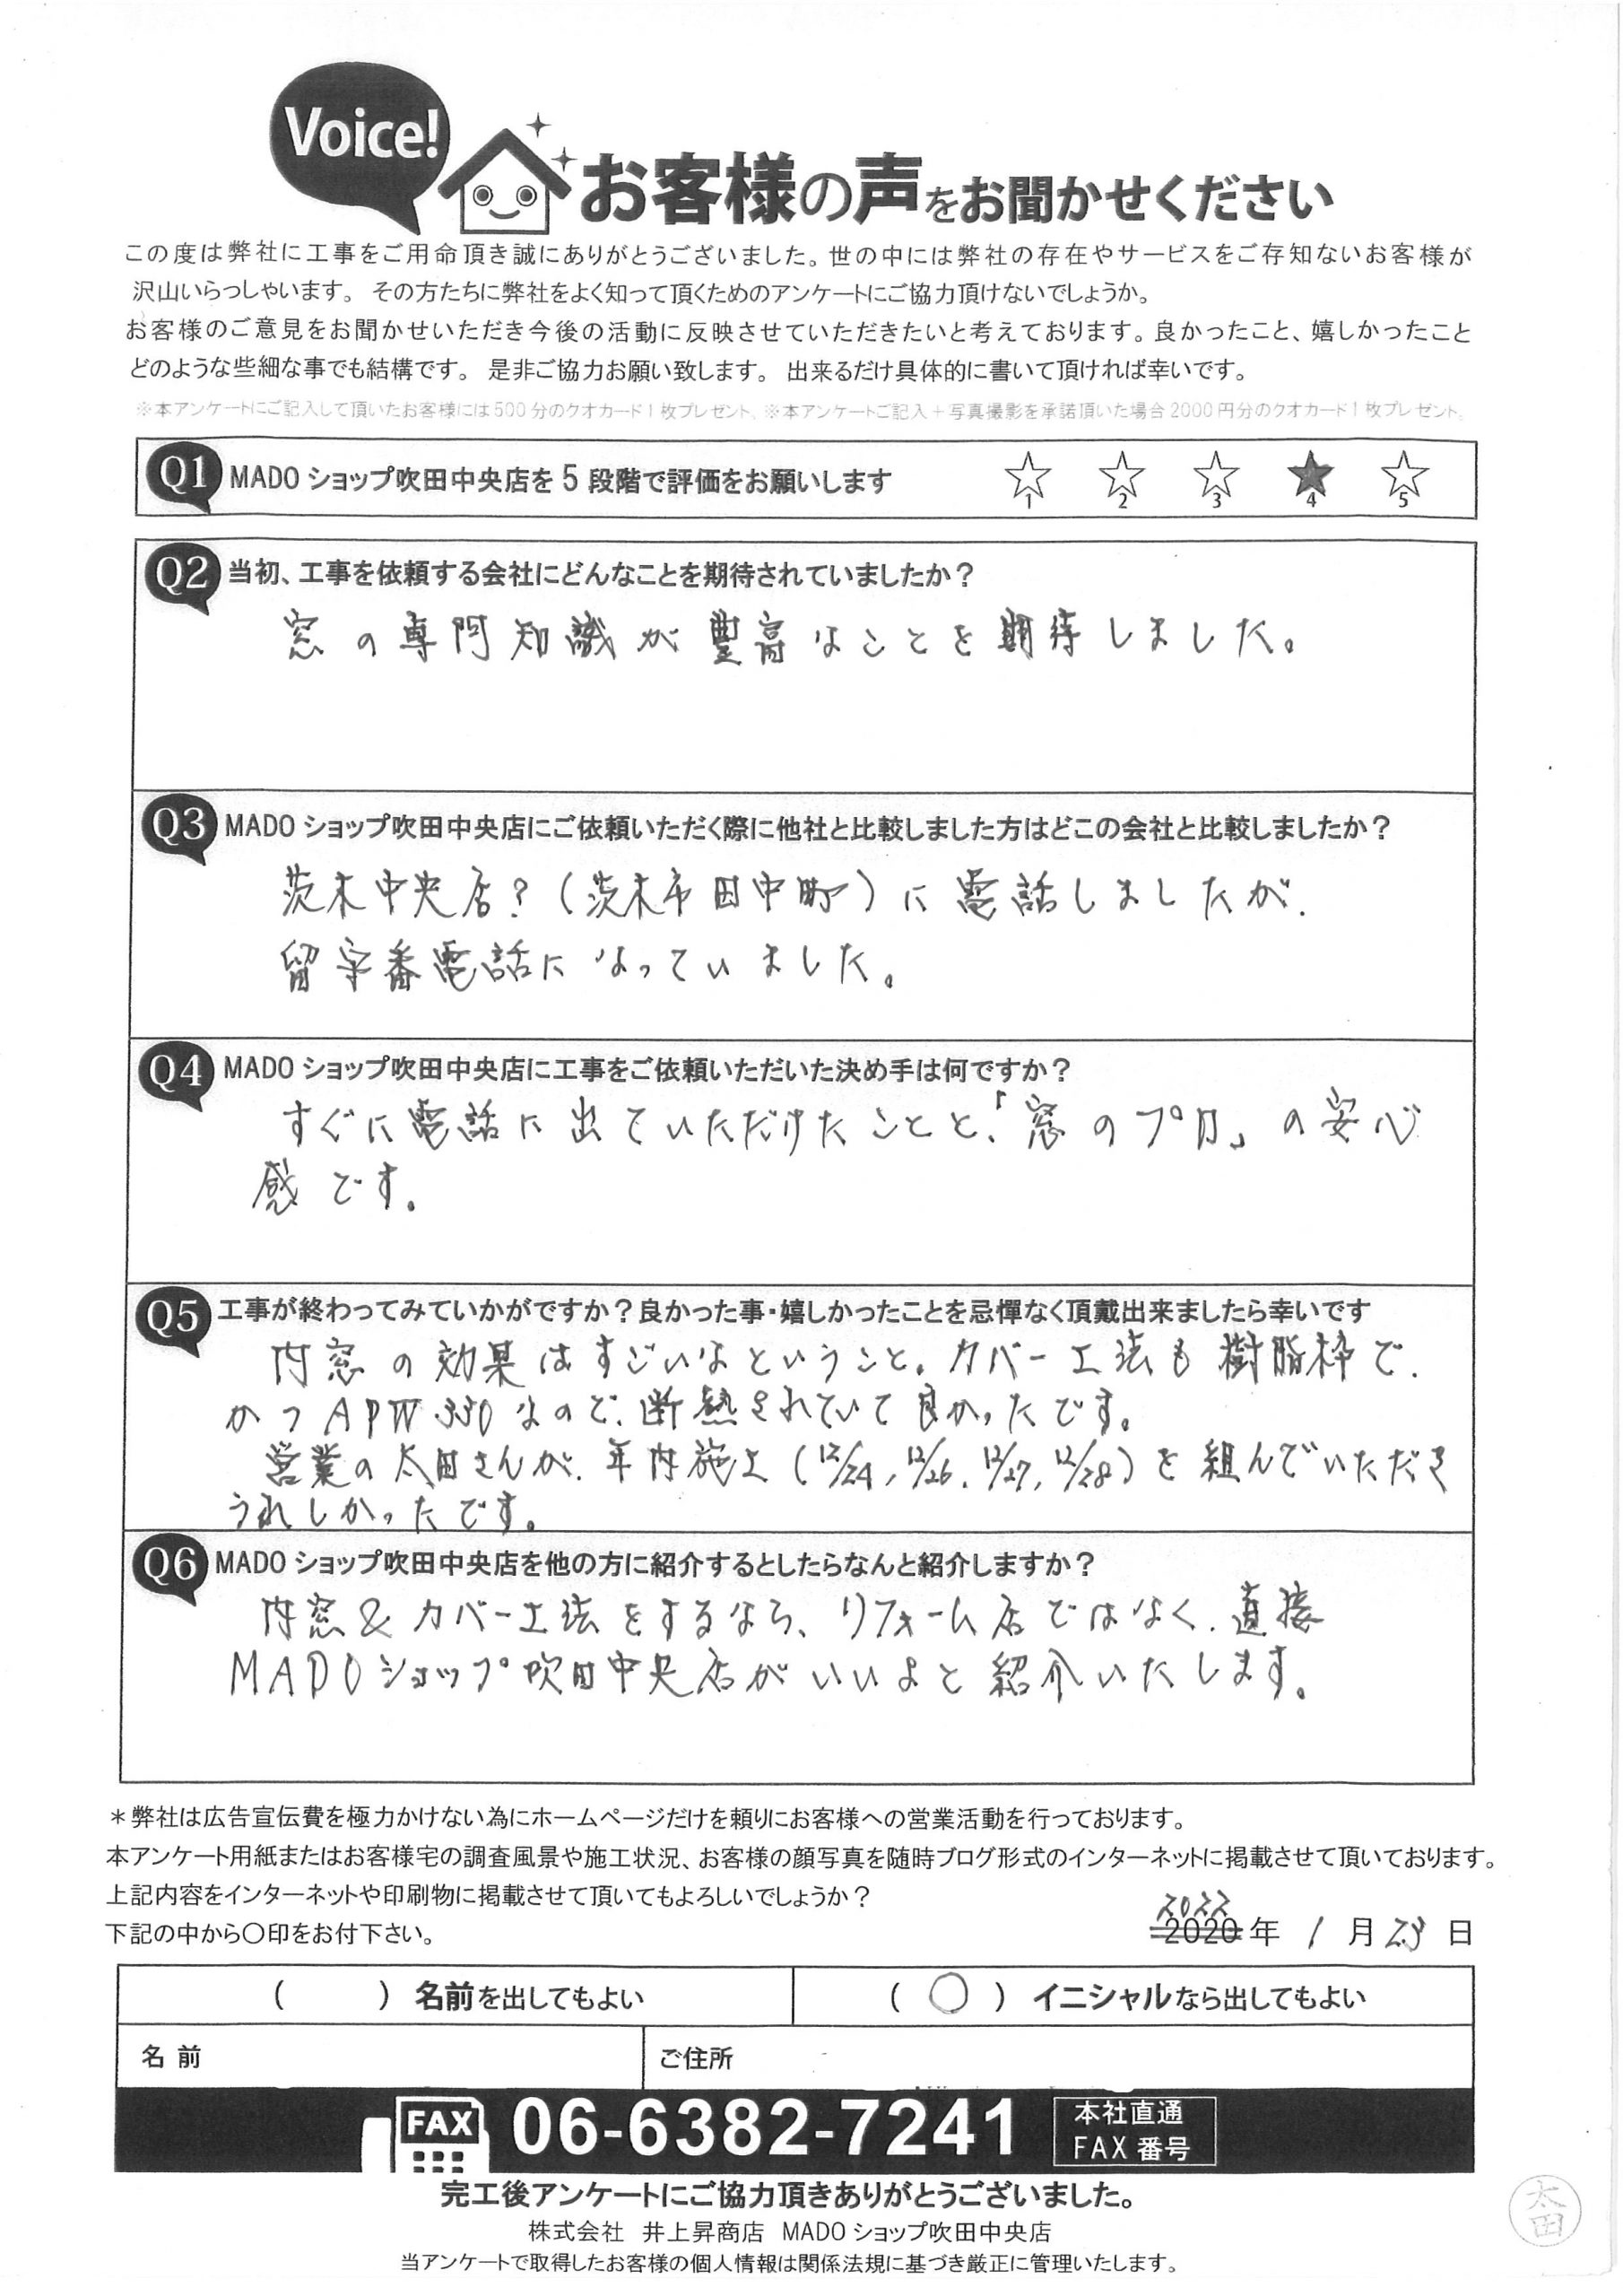 Voice!
お客様の声をお聞かせください
この度は弊社に工事をご用命頂き誠にありがとうございました。世の中には弊社の存在やサービスをご存知ないお客様が
沢山いらっしゃいます。その方たちに弊社をよく知って頂くためのアンケートにご協力頂けないでしょうか。
お客様のご意見をお聞かせいただき今後の活動に反映させていただきたいと考えております。良かったこと、嬉しかったこと
どのような些細な事でも結構です。是非ご協力お願い致します。出来るだけ具体的に書いて頂ければ幸いです。
※本アンケートにご記入して頂いたお客様には500分のクオカード1枚プレゼント、※本アンケートご記入+写真撮影を承諾頂いた場合2000円分のクオカード1枚プレゼント。
Q1 MADOショップ吹田中央店を5段階で評価をお願いします ☆1 ☆2 ☆3 ★4 ☆5
Q2 当初、工事を依頼する会社にどんなことを期待されていましたか?
窓の専門知識が豊富なことを期待しました。
Q3 MADOショップ吹田中央店にご依頼いただく際に他社と比較しました方はどこの会社と比較しましたか?
茨木中央店?(茨木市田中町)に電話しましたが、
留守番電話になっていました。
Q4 MADOショップ吹田中央店に工事をご依頼いただいた決め手は何ですか?
すぐに電話に出ていただけたことと、「窓のプロ」の安心
感です。
Q5 工事が終わってみていかがですか?良かった事・嬉しかったことを忌憚なく頂戴出来ましたら幸いです
内窓の効果はすごいなということ。カバー工法も樹脂枠で、
かつAPW330なので、断熱されていて良かったです。
営業の太田さんが、年内施工(12/24,12/26,12/27,12/28)を組んでいただき
うれしかったです。
Q6 MADOショップ吹田中央店を他の方に紹介するとしたらなんと紹介しますか?
内窓&カバー工法をするなら、リフォーム店ではなく、直接
MADOショップ吹田中央店がいいよと紹介いたします。
*弊社は広告宣伝費を極力かけない為にホームページだけを頼りにお客様への営業活動を行っております。
本アンケート用紙またはお客様宅の調査風景や施工状況、お客様の顔写真を随時ブログ形式のインターネットに掲載させて頂いております。
上記内容をインターネットや印刷物に掲載させて頂いてもよろしいでしょうか?
2022
下記の中から〇印をお付下さい。 2020年 1月23日
( )名前を出してもよい (〇)イニシャルなら出してもよい
名前 ご住所
FAX 06-6382-7241 本社直通
FAX番号
完工後アンケートにご協力頂きありがとうございました。
株式会社 井上昇商店 MADOショップ吹田中央店
当アンケートで取得したお客様の個人情報は関係法規に基づき厳正に管理いたします。
太田